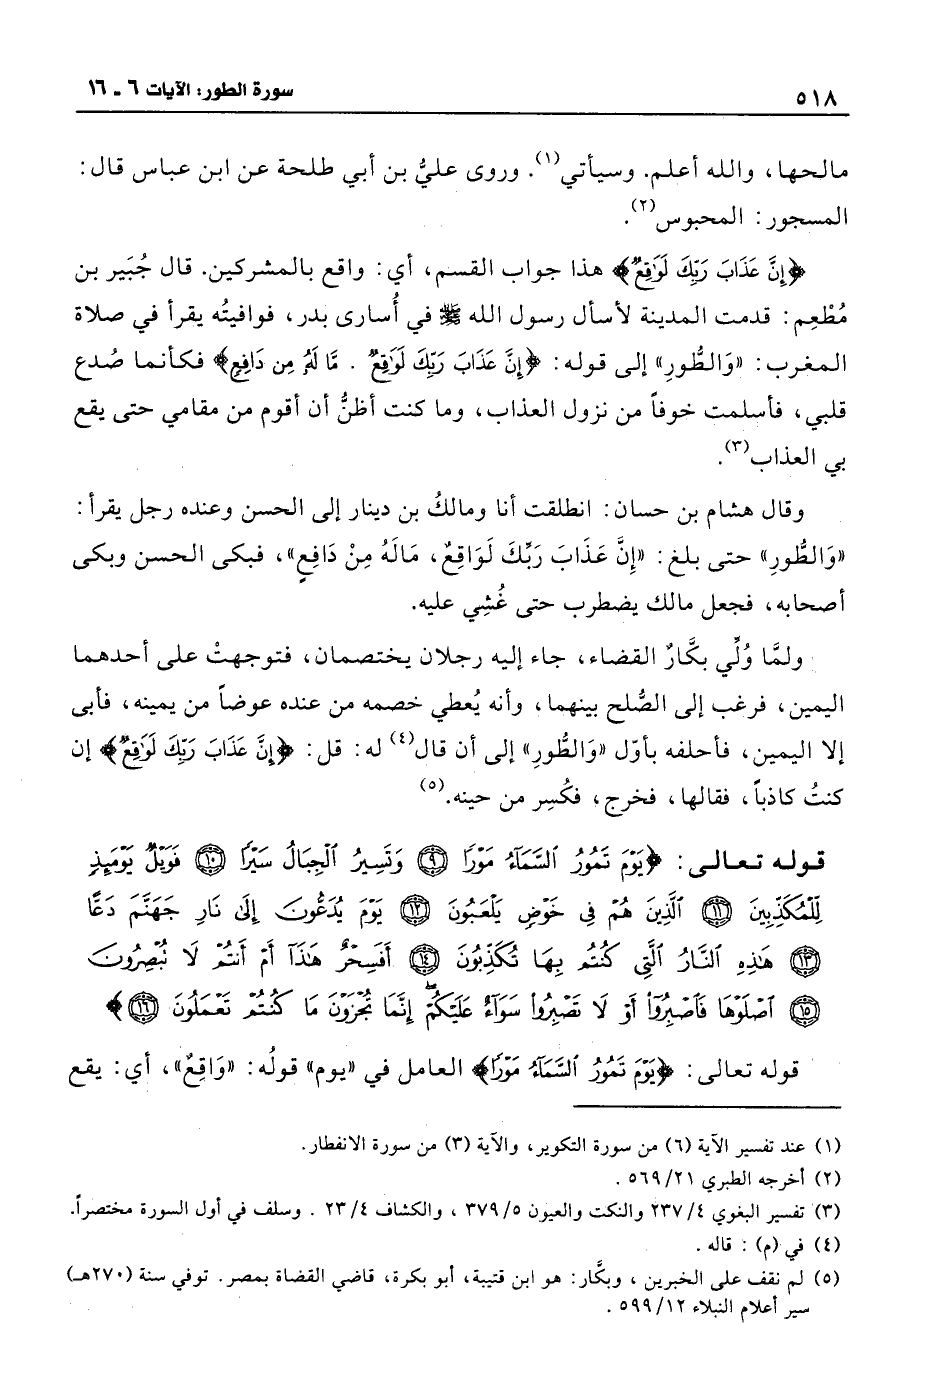 ٥١٨
سورة الطور: الآيات ٦ - ١٦
مالحها، والله أعلم. وسيأتي(١). وروى عليُّ بن أبي طلحة عن ابن عباس قال:
المسجور: المحبوس(٢).
﴿إِنَّ عَذَابَ رَبِّكَ لَوَٰقِعٌ﴾ هذا جواب القسم، أي: واقع بالمشركين. قال جُبَير بن
مُطْعِم: قدمت المدينة لأسأل رسول الله ﷺ في أُسارى بدر، فوافيتُه يقرأ في صلاة
المغرب: «وَالطُّورِ» إلى قوله: ﴿إِنَّ عَذَابَ رَبِّكَ لَوَٰقِعٌ . مَّا لَهُۥ مِن دَافِعٍ﴾ فكأنما صُدع
قلبي، فأسلمت خوفاً من نزول العذاب، وما كنت أظنُّ أن أقوم من مقامي حتى يقع
بي العذاب(٣).
وقال هشام بن حسان: انطلقت أنا ومالكُ بن دينار إلى الحسن وعنده رجل يقرأ:
«وَالطُّورِ» حتى بلغ: «إِنَّ عَذَابَ رَبِّكَ لَوَاقِعٌ، مَالَهُ مِنْ دَافِعٍ»، فبكى الحسن وبكى
أصحابه، فجعل مالك يضطرب حتى غُشِي عليه.
ولمَّا وُلِّي بكَّارٌ القضاء، جاء إليه رجلان يختصمان، فتوجهتْ على أحدهما
اليمين، فرغب إلى الصُّلح بينهما، وأنه يُعطي خصمه من عنده عوضاً من يمينه، فأبى
إلا اليمين، فأحلفه بأوّل «وَالطُّورِ» إلى أن قال(٤) له: قل: ﴿إِنَّ عَذَابَ رَبِّكَ لَوَٰقِعٌ﴾ إن
كنتُ كاذباً، فقالها، فخرج، فكُسِر من حينه.(٥)
قوله تعالى: ﴿يَوْمَ تَمُورُ ٱلسَّمَآءُ مَوْرًا ۝٩ وَتَسِيرُ ٱلْجِبَالُ سَيْرًا ۝١٠ فَوَيْلٌ يَوْمَئِذٍ
لِّلْمُكَذِّبِينَ ۝١١ ٱلَّذِينَ هُمْ فِى خَوْضٍ يَلْعَبُونَ ۝١٢ يَوْمَ يُدَعُّونَ إِلَىٰ نَارِ جَهَنَّمَ دَعًّا
۝١٣ هَٰذِهِ ٱلنَّارُ ٱلَّتِى كُنتُم بِهَا تُكَذِّبُونَ ۝١٤ أَفَسِحْرٌ هَٰذَآ أَمْ أَنتُمْ لَا تُبْصِرُونَ
۝١٥ ٱصْلَوْهَا فَٱصْبِرُوٓا۟ أَوْ لَا تَصْبِرُوا۟ سَوَآءٌ عَلَيْكُمْ ۖ إِنَّمَا تُجْزَوْنَ مَا كُنتُمْ تَعْمَلُونَ ۝١٦﴾
قوله تعالى: ﴿يَوْمَ تَمُورُ ٱلسَّمَآءُ مَوْرًا﴾ العامل في «يوم» قولُه: «وَاقِعٌ»، أي: يقع
(١) عند تفسير الآية (٦) من سورة التكوير، والآية (٣) من سورة الانفطار.
(٢) أخرجه الطبري ٥٦٩/٢١ .
(٣) تفسير البغوي ٢٣٧/٤ والنكت والعيون ٣٧٩/٥ ، والكشاف ٢٣/٤ . وسلف في أول السورة مختصراً.
(٤) في (م) : قاله .
(٥) لم نقف على الخبرين ، وبكَّار: هو ابن قتيبة، أبو بكرة، قاضي القضاة بمصر. توفي سنة (٢٧٠هـ)
سير أعلام النبلاء ٥٩٩/١٢ .